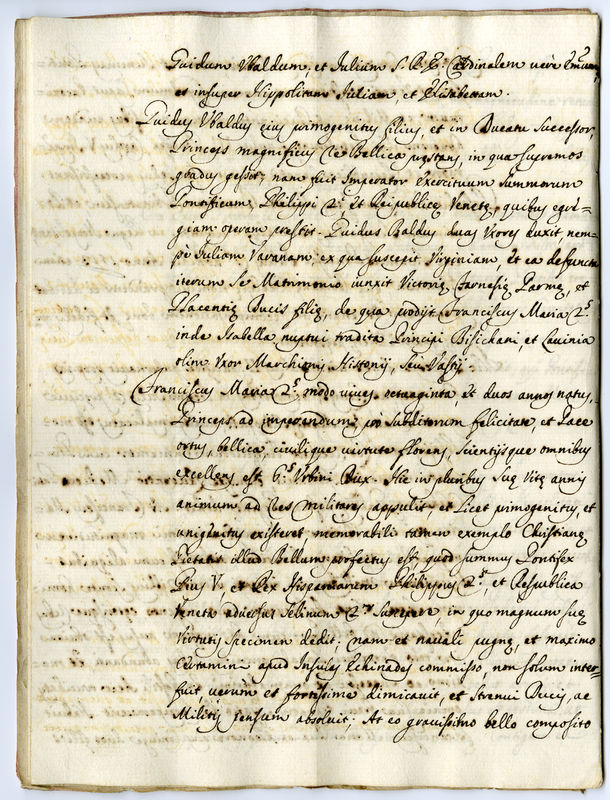 Guidum Vbaldum, et Iulium S. R. E. Cardinalem uerè
et insuper Hippolitam Iuliam, et Elisabettam.
Guidus Vbaldus eius primogenitus filius, et in Ducatu Successor,
Princeps magnificus Re Bellica pręstans, in qua supremos
gradus gessit; nam fuit Imperator Exercituum Summorum
Pontificum, Philippi 2.i et Reipublicę Venetę, quibus egre=
giam operam prestit. Guidus Baldus duas Vxores duxit nem=
pè Iuliam Varanam ex qua suscepit Virginiam, et ea defuncta
iterum se Matrimonio iunxit Victorię Farnesię Parmę, et
Placentię Ducis filię, de qua prodijt Franciscus Maria 2.s
inde Isabella nuptui tradita Principi Bisichani, et Lauinia
olim Vxor Marchionis Histonij, seu Vasti.
Franciscus Maria 2.s modo uiues octuaginta, et duos annos natus,
Princeps ad imperandum pro Subditorum felicitate, et Pace
ortus, bellica, ciuilique uirtute florens, scientijsque omnibus
excellens, est 6.s Vrbini Dux. Hic in pluribus suę Vitę annis
animum ad Res Militares appulit, et licet primogenitus, et
unigenitus existeret memorabili tamen exemplo Christianę
Pietatis illud Bellum profectus est, quod summus Pontifex
Pius V. et Rex Hispaniarum Philippus 2.s, et Respublica
Veneta aduersus Selinum 2.m Suscepere, in quo magnum suę
Virtutis specimen dedit; nam et nauali pugnę, et maximo
Certamini apud Insulas Echinades commisso, non solum inter=
fuit, uerum et fortissime dimicauit, et Strenui Ducis, ac
Militis sensum absoluit; At eo grauissimo bello composito